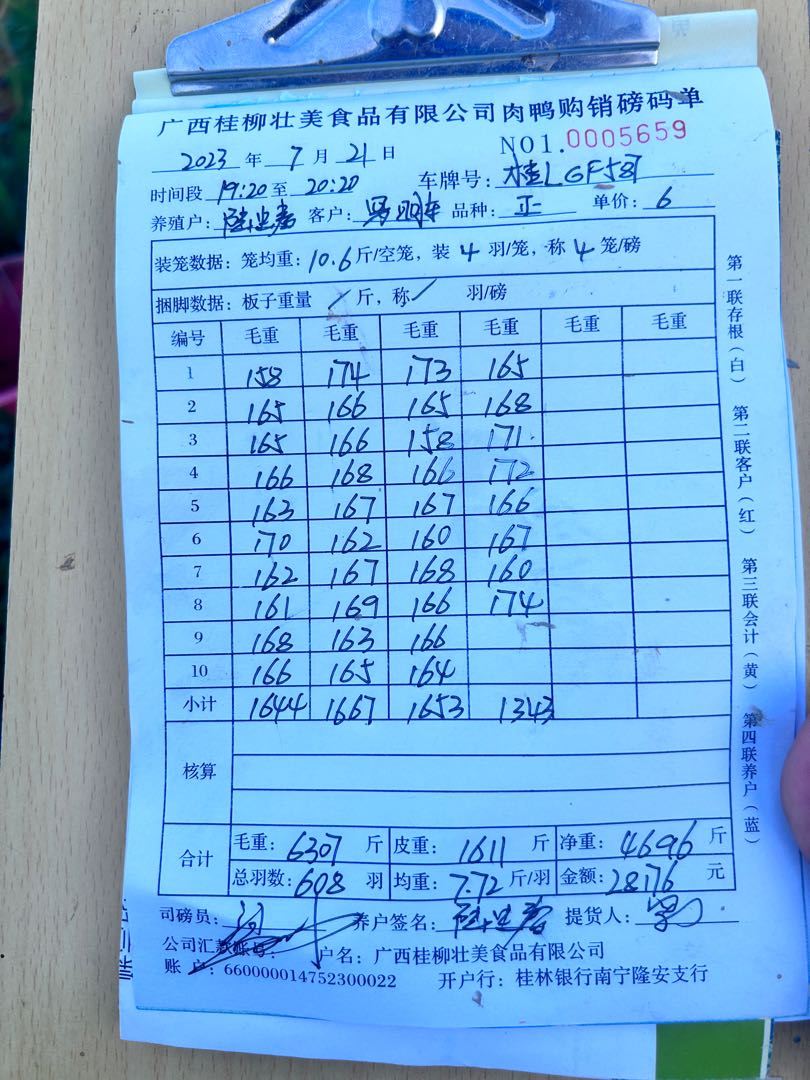 广西桂柳壮美食品有限公司肉鸭购销磅码单
NO1.0005659
2023 年 7 月 21 日
时间段 19:20 至 20:20 车牌号: 桂LGF587
养殖户: 客户: 品种: 正 单价: 6
装笼数据: 笼均重: 10.6 斤/空笼, 装 4 羽/笼, 称 4 笼/磅
捆脚数据: 板子重量 / 斤, 称 / 羽/磅
编号 毛重 毛重 毛重 毛重 毛重 毛重
1 158 174 173 165
2 165 166 165 168
3 165 166 158 171
4 166 168 166 172
5 163 167 167 166
6 170 162 160 167
7 162 167 168 160
8 161 169 166 174
9 168 163 166
10 166 165 164
小计 1644 1667 1653 1343
核算
合计 毛重: 6307 斤 皮重: 1611 斤 净重: 4696 斤
总羽数: 608 羽 均重: 7.72 斤/羽 金额: 28176 元
司磅员: 养户签名: 提货人:
公司汇款账号: 户名: 广西桂柳壮美食品有限公司
账户: 660000014752300022 开户行: 桂林银行南宁隆安支行
第一联存根(白) 第二联客户(红) 第三联会计(黄) 第四联养户(蓝)